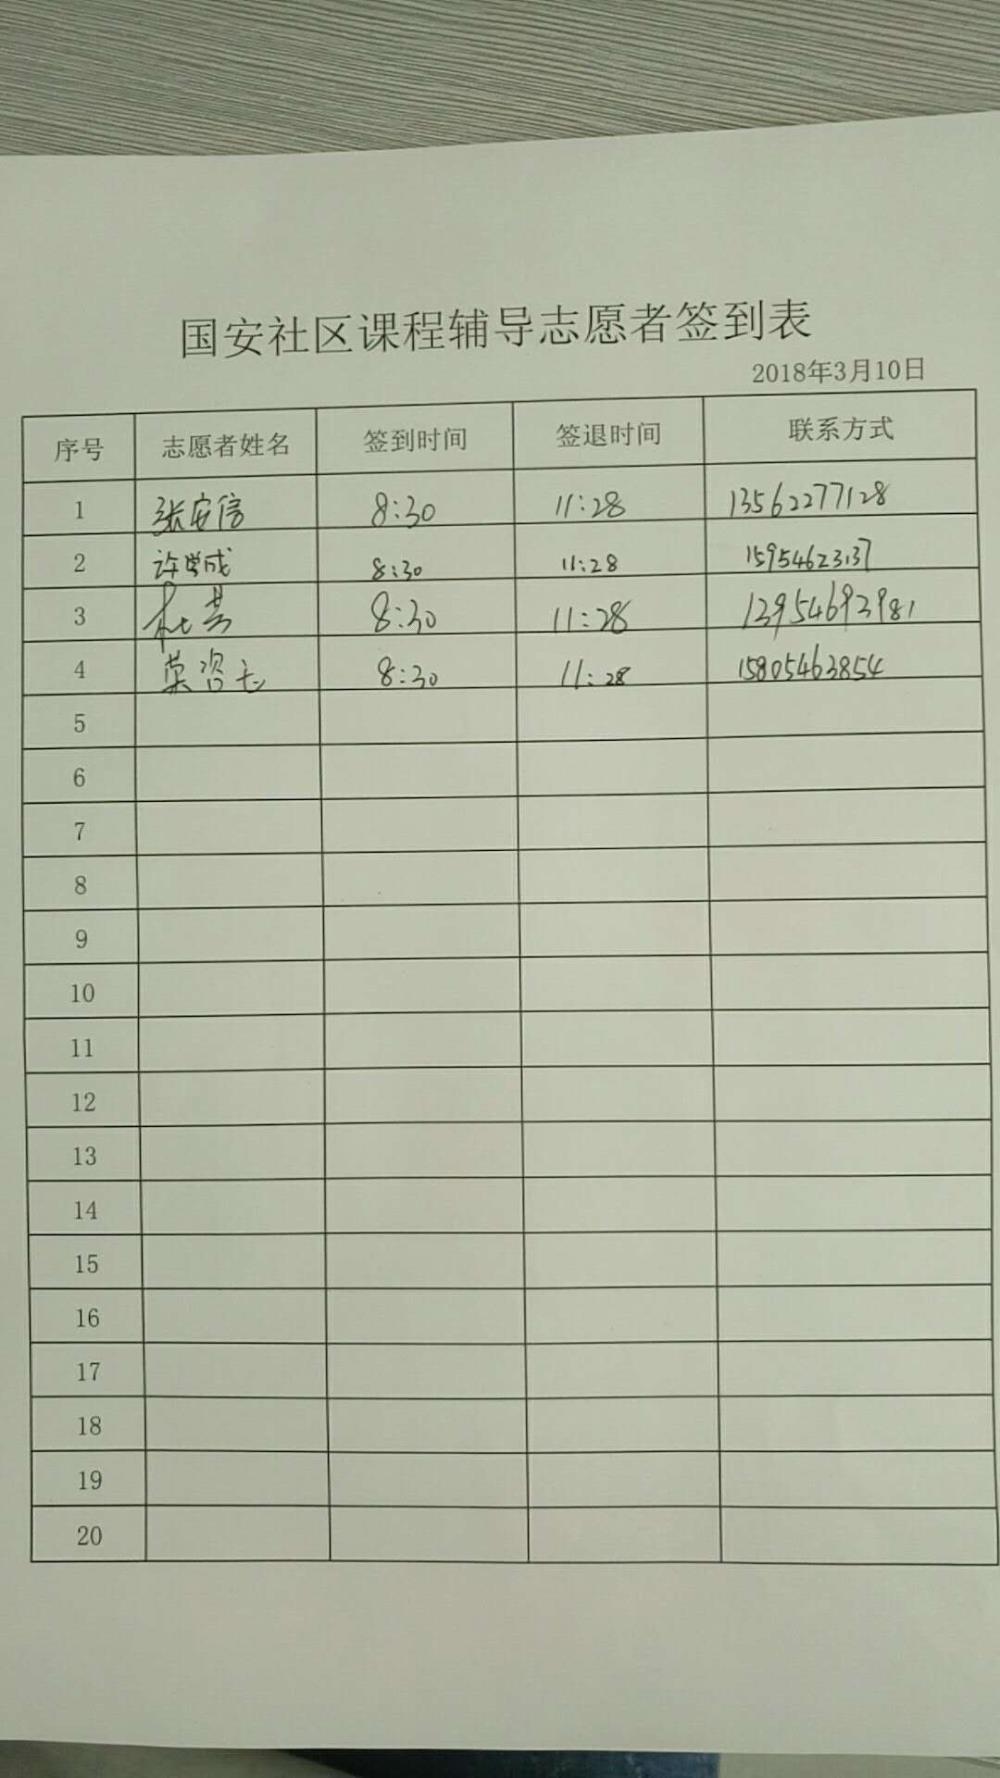 国安社区课程辅导志愿者签到表
2018年3月10日
序号 志愿者姓名 签到时间 签退时间 联系方式
1 张安信 8:30 11:28 13562277128
2 许学成 8:30 11:28 15954623137
3 杜芸 8:30 11:28 13954693981
4 8:30 11:28 15805463854
5
6
7
8
9
10
11
12
13
14
15
16
17
18
19
20